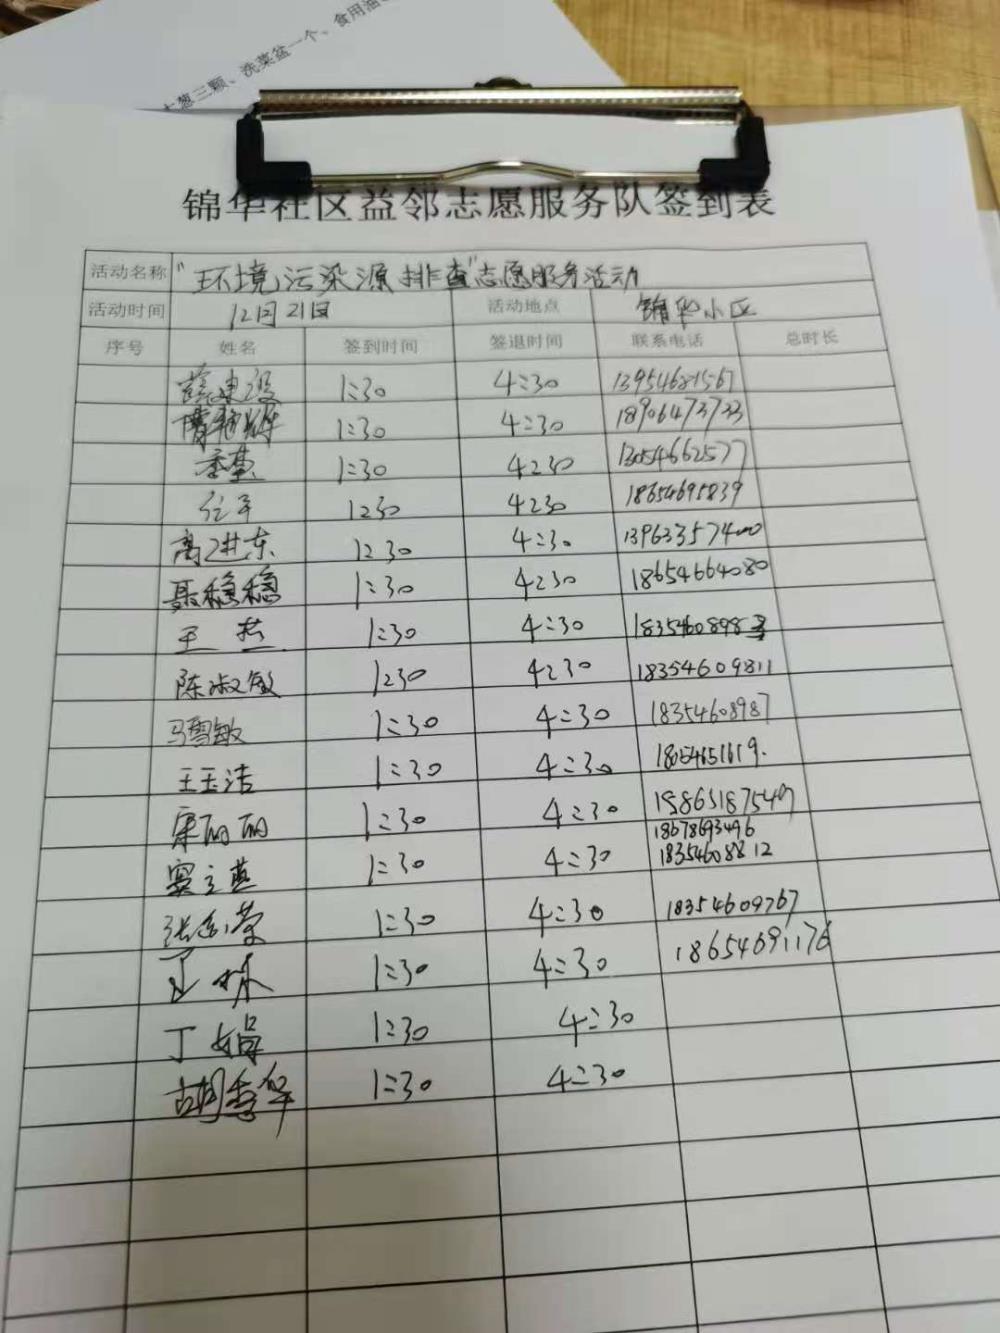 大葱三颗、洗菜盆一个、食用油
锦华社区益邻志愿服务队签到表
活动名称 "环境污染源排查"志愿服务活动
活动时间 12月21日 活动地点 锦华小区
序号 姓名 签到时间 签退时间 联系电话 总时长
薛建设 1:30 4:30 13954681567
1:30 4:30 18906473733
1:30 4:30 13054662577
任平 1:30 4:30 18654695839
高进东 1:30 4:30 13963357400
聂稳稳 1:30 4:30 18654664080
王燕 1:30 4:30 1835460898
陈淑敏 1:30 4:30 18354609811
马雪敏 1:30 4:30 18354608987
王玉洁 1:30 4:30 18054651619.
康丽丽 1:30 4:30 15865187549
18678693496
窦立燕 1:30 4:30 18354608812
1:30 4:30 18354609767
1:30 4:30 18654691176
丁娟 1:30 4:30
胡秀华 1:30 4:30